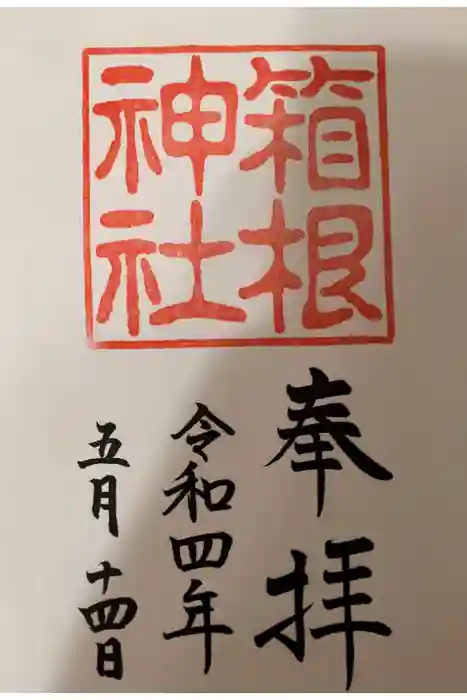 箱根
神社
奉拝
令和四年
五月十四日